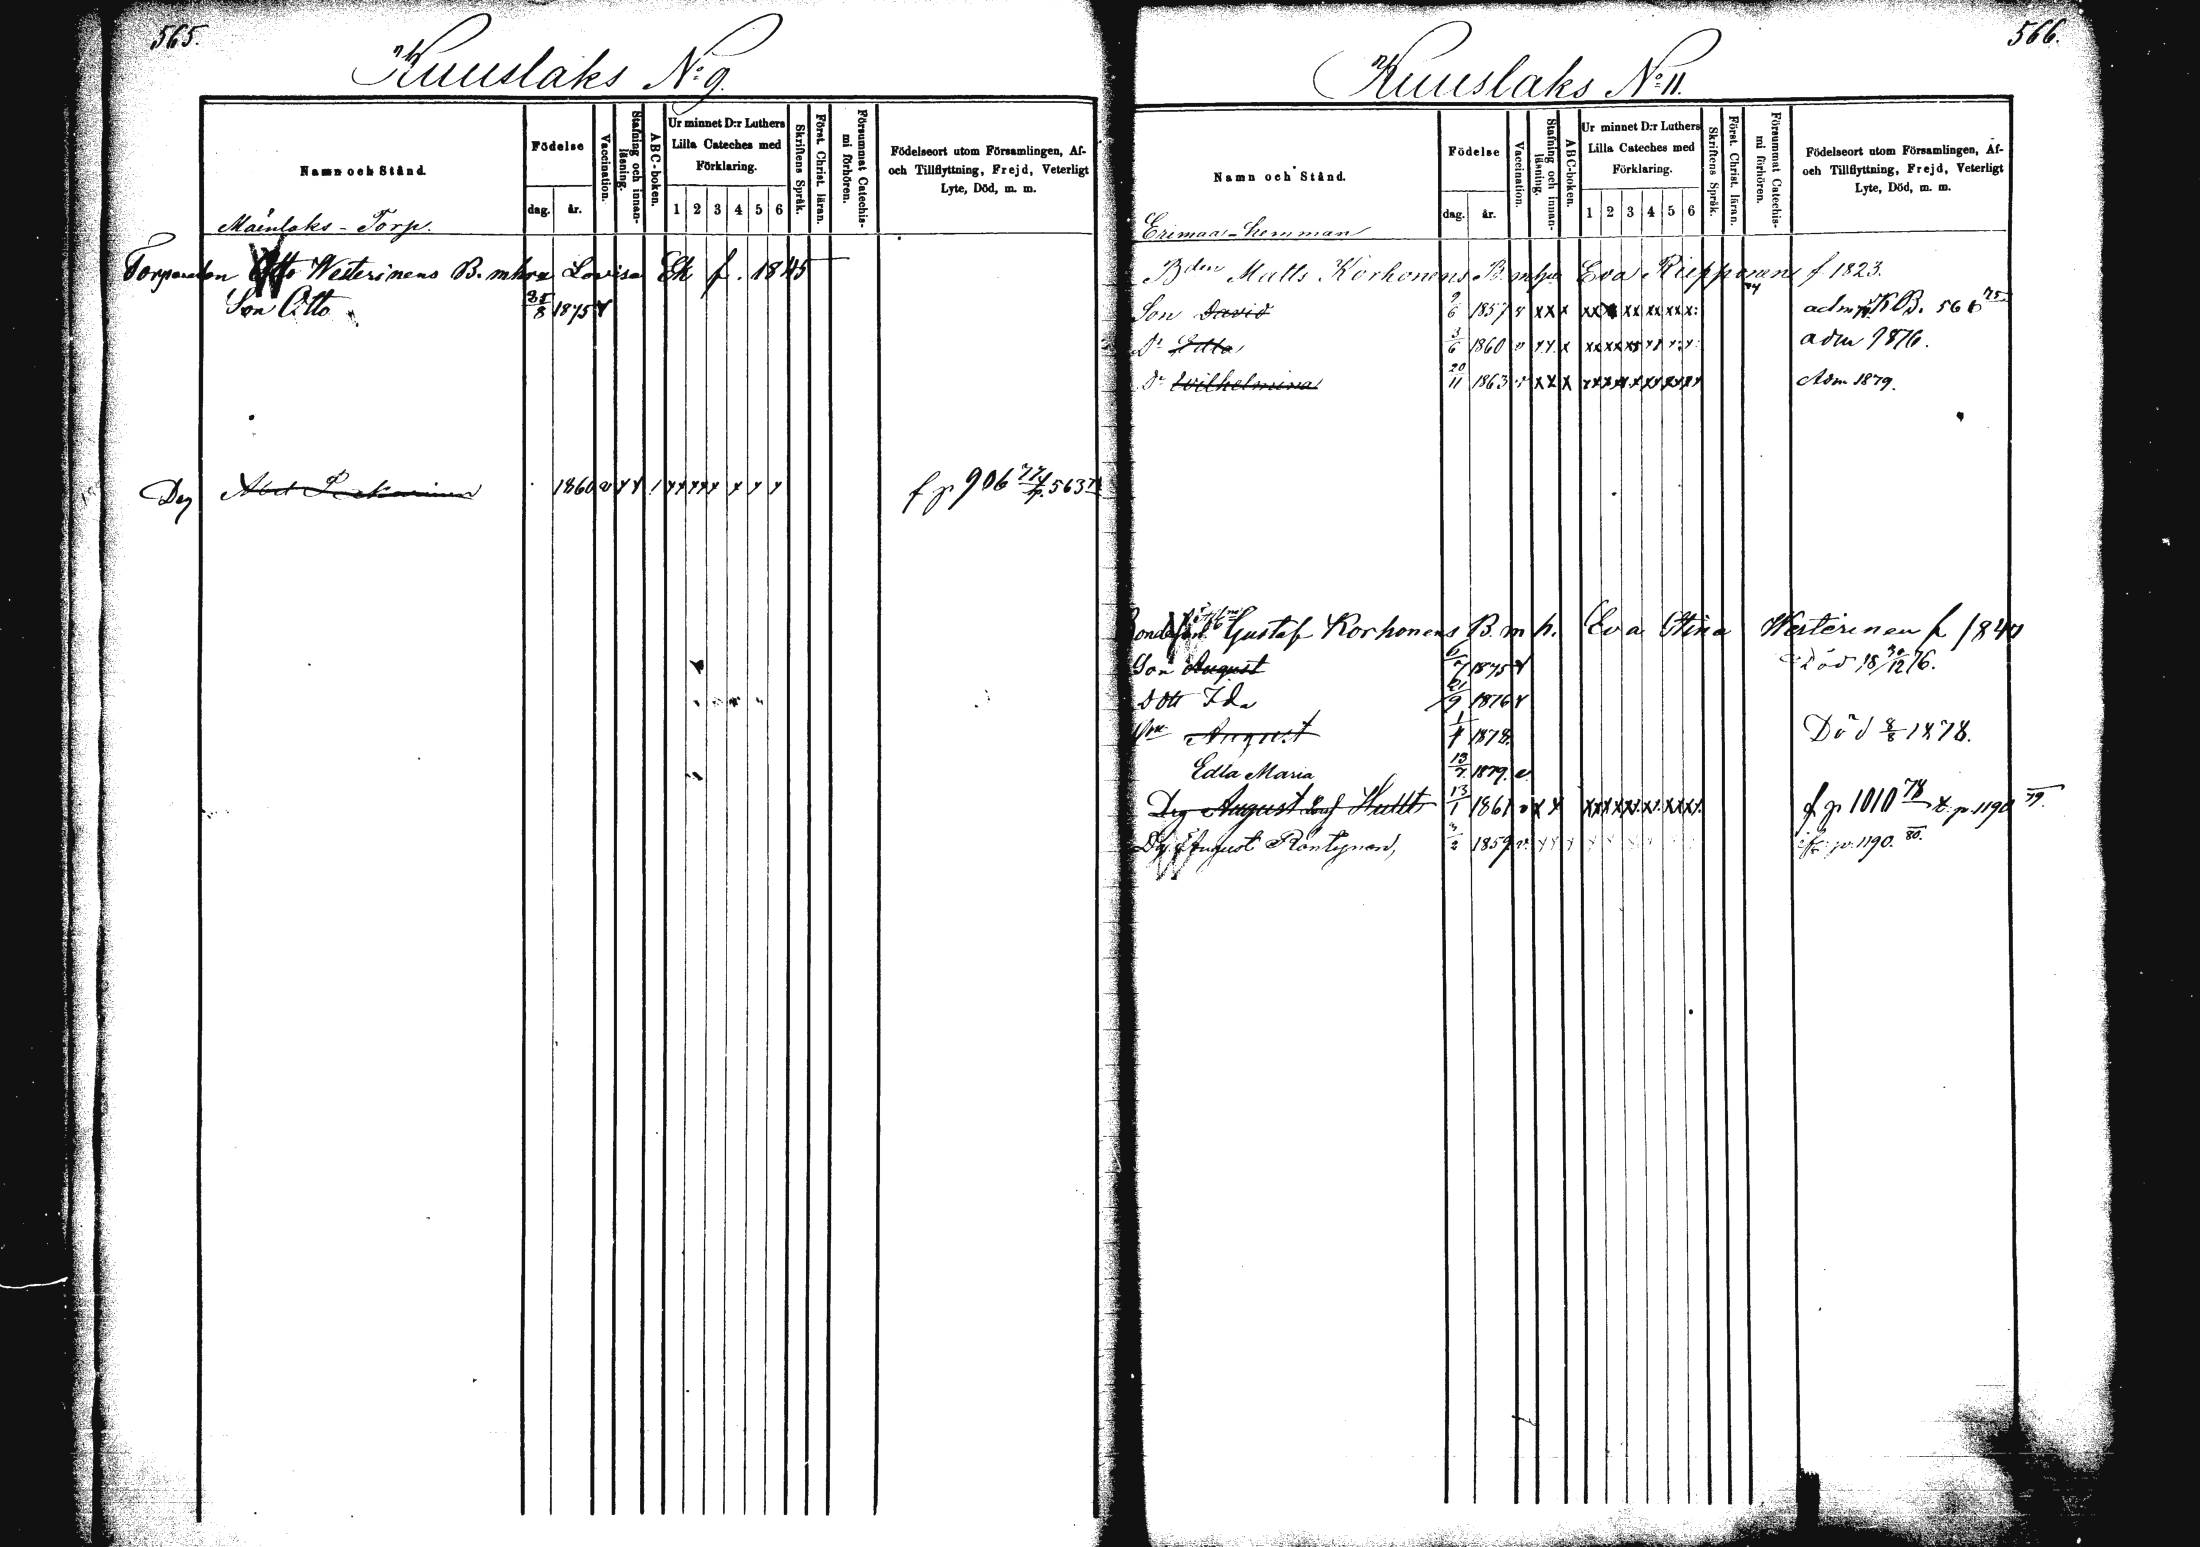 565.
Kuuslaks No 9.
Namn och Stånd.
Födelse
dag.
år.
Vaccination.
Stafning och innan-
läsning.
ABC-boken.
Ur minnet D:r Luthers
Lilla Cateches med
Förklaring.
1 2 3 4 5 6
Skriftens Språk.
Först. Christ. läran.
Försummat Catechis-
mi förhören.
Födelseort utom Församlingen, Af-
och Tillflyttning, Frejd, Veterligt
Lyte, Död, m. m.
Mäinlaks - Torp.
Otto Westerinens B. mhra Lovisa Ek f. 1845
Son Otto 25/8 1875 v
Dg Abel 1860 v x x f p 906 p. 563
566.
Kuuslaks No 11.
Namn och Stånd.
Födelse
dag.
år.
Vaccination.
Stafning och innan-
läsning.
ABC-boken.
Ur minnet D:r Luthers
Lilla Cateches med
Förklaring.
1 2 3 4 5 6
Skriftens Språk.
Först. Christ. läran.
Försummat Catechis-
mi förhören.
Födelseort utom Församlingen, Af-
och Tillflyttning, Frejd, Veterligt
Lyte, Död, m. m.
Erimaa-hemman
Bden Matts Korhonens B. mhra Eva Riepponen f 1823.
Son David 9/6 1857 v x x x xx xx xx xx xx x: adm KB. 566 75
Dr Edla 3/6 1860 v x x x adm 1876.
Dr Wilhelmina 20/11 1863 v x x x Adm 1879.
Gustaf Korhonens B. m h. Eva Stina Westerinen f 1847
Son August 6/7 1875 v Död 18 30/12 76.
Dott Ida 21/9 1876 v
Son August 1878. Död 8/8 1878.
Edla Maria 13/7 1879. v
Dg August Hultt 13/1 1861 v x x f p 1010 78 t. p. 1190 79.
Dg August Röntynen, 3/2 1859 v. p. 1190. 80.